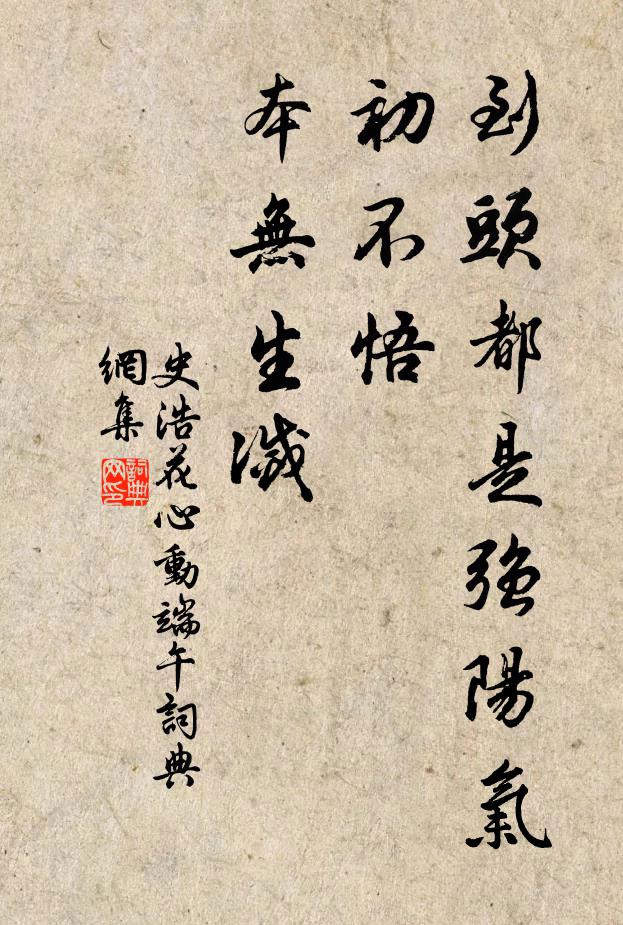 到頭都是強陽氣
初不悟
本無生滅
史浩花心動端午詞典
網集
詞典
网印